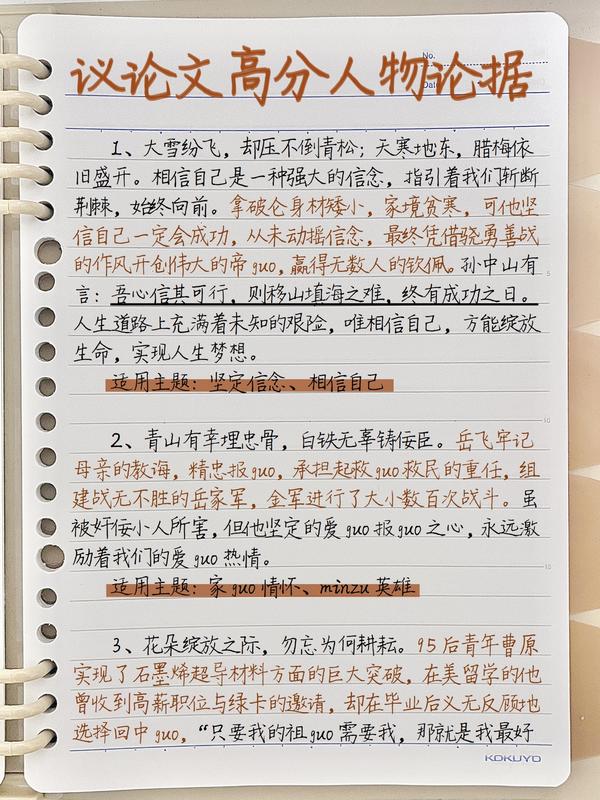 议论文高分人物论据
No.
Date
1、大雪纷飞，却压不倒青松；天寒地东，腊梅依
旧盛开。相信自己是一种强大的信念，指引着我们斩断
荆棘，始终向前。拿破仑身材矮小，家境贫寒，可他坚
信自己一定会成功，从未动摇信念，最终凭借骁勇善战
的作风开创伟大的帝guo，赢得无数人的钦佩。孙中山有
言：吾心信其可行，则移山填海之难，终有成功之日。
人生道路上充满着未知的艰险，唯相信自己，方能绽放
生命，实现人生梦想。
适用主题：坚定信念、相信自己
2、青山有幸埋忠骨，白铁无辜铸佞臣。岳飞牢记
母亲的教诲，精忠报guo，承担起救guo救民的重任，组
建战无不胜的岳家军，金军进行了大小数百次战斗。虽
被奸佞小人所害，但他坚定的爱guo报guo之心，永远激
励着我们的爱guo热情。
适用主题：家guo情怀、minzu英雄
3、花朵绽放之际，勿忘为何耕耘。95后青年曹原
实现了石墨烯超导材料方面的巨大突破，在美留学的他
曾收到高薪职位与绿卡的邀请，却在毕业后义无反顾地
选择回中guo，“只要我的祖guo需要我，那就是我最好
KOKUYO